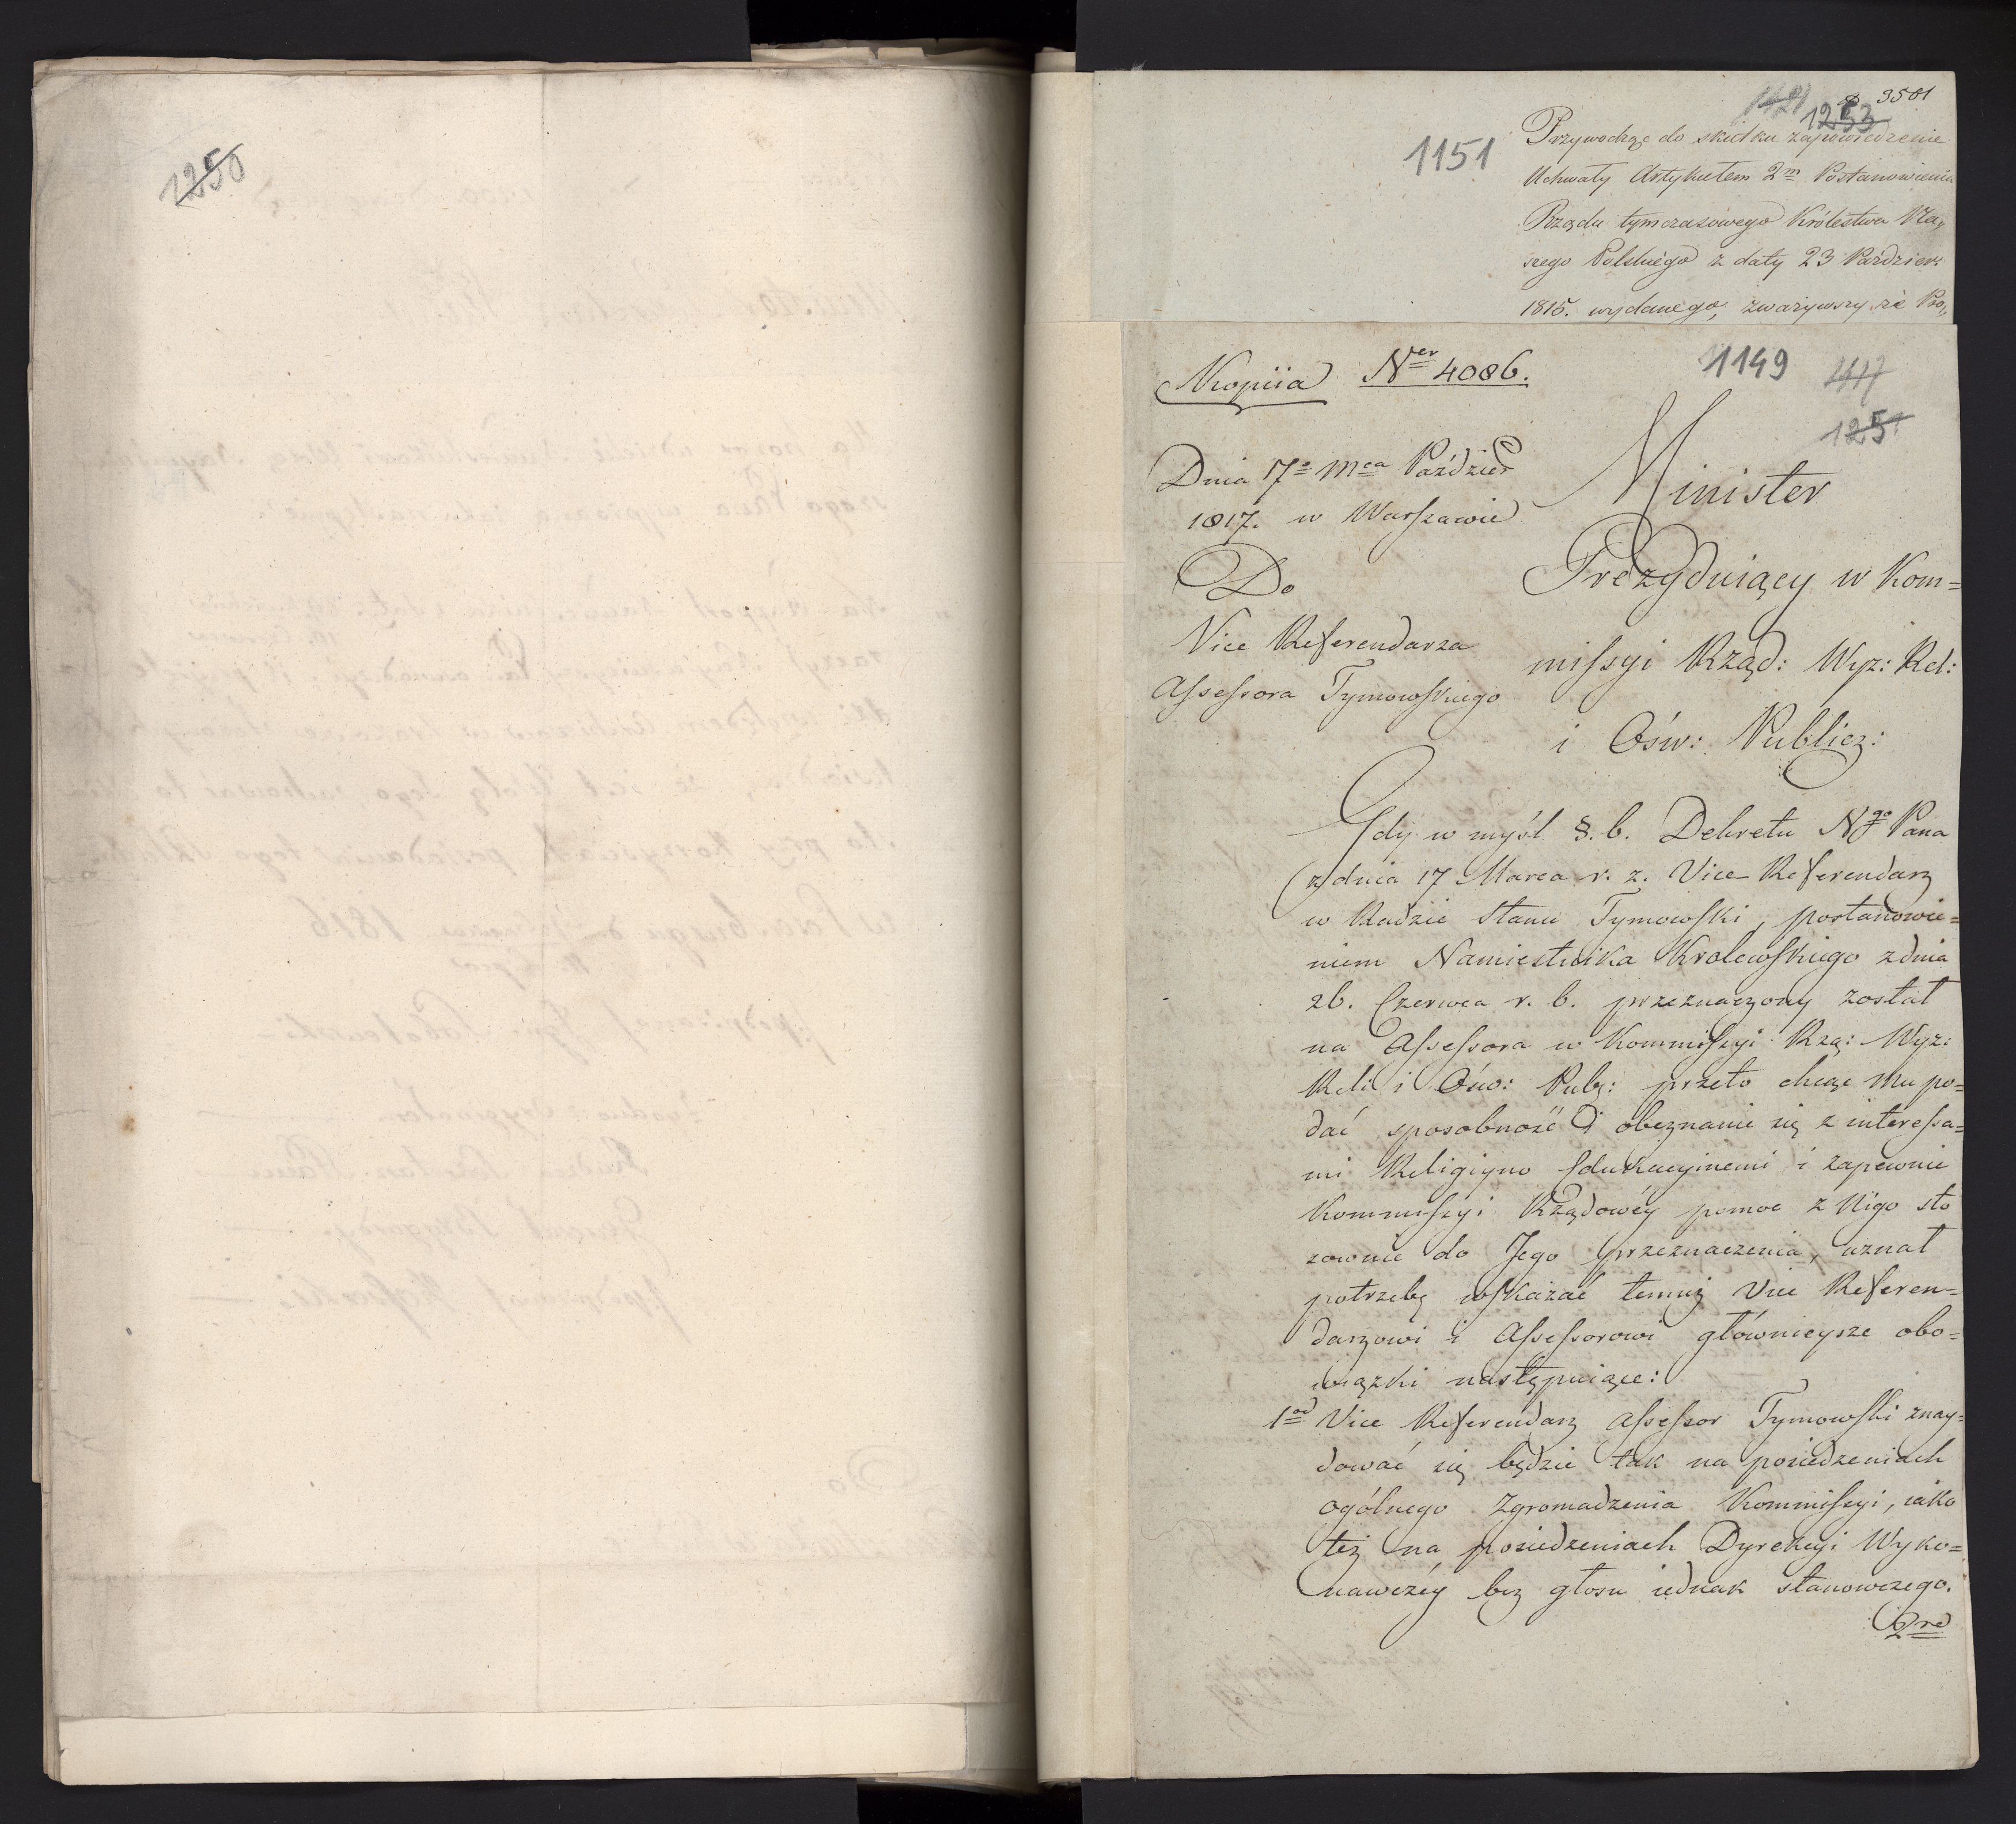 1250
3501
1253
1151
Przywodząc do skutku zapowiedzenie
Uchwały Artykułem 2m Postanowienia
Rządu tymczasowego Królestwa Na„
szego Polskiego z daty 23 Paździer:
1815. wydanego, zważywszy, że Pro„
Kopiia Ner 4086.
1149
1251
Dnia 17o Mca Paździer
1817. w Warszawie
Do
Vice Referendarza
Assessora Tymowskiego
Minister
Prezyduiący w Kom=
missyi Rząd: Wyz: Rel:
i Ośw: Publicz:
Gdy w myśl §. 6. Dekretu Ngo Pana
z dnia 17 Marca r. z. Vice Referendarz
w Radzie Stanu Tymowski, postanowie=
niem Namiestnika Krolewskiego z dnia
26. Czerwca r. b. przeznaczony został
na Assessora w Kommissyi Rzą: Wyz:
Reli i Ośw: Pub: przeto chcąc Mu po=
dać sposobność obeznania się z interessa=
mi Religiyno Edukacyinemi i zapewnić
Kommissyi Rządowéy pomoc z Nigo sto
sownie do Jego przeznaczenia, uznał
potrzebę wskazać temuż Vice Referen=
darzowi i Assessorowi głównieysze obo=
wiązki następuiące:
1od Vice Referendarz Assessor Tymowski znay=
dować się będzie tak na posiedzeniach
ogólnego Zgromadzenia Kommissyi, iako
też na posiedzeniach Dyrekcyi Wyko=
nawczéy bez głosu iednak stanowczego.
2re